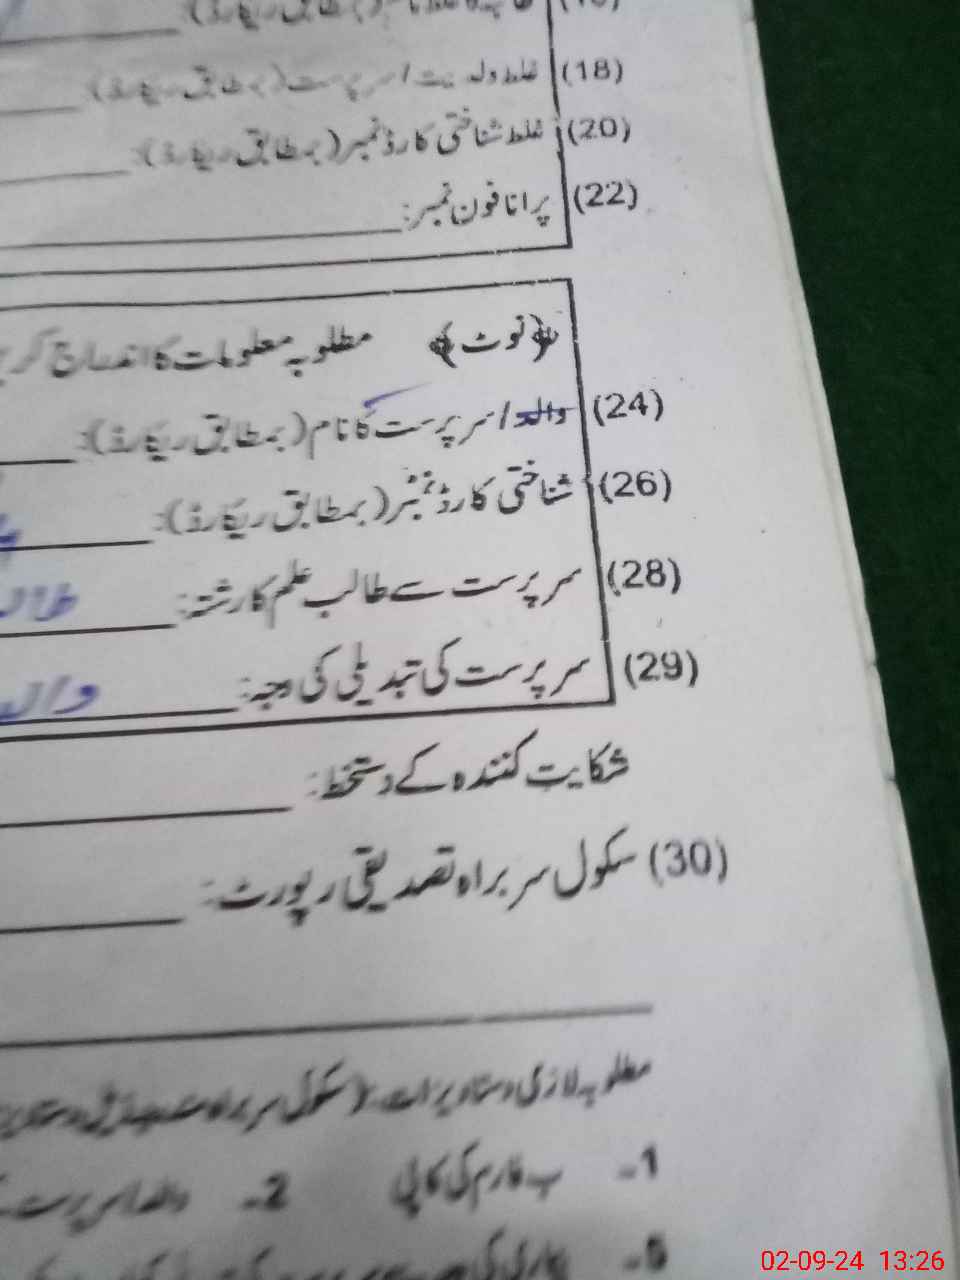 (بمطابق ریکارڈ):
(18) غلط ولدیت / سرپرست (بمطابق ریکارڈ):
(20) غلط شناختی کارڈ نمبر (بمطابق ریکارڈ):
(22) پرانا فون نمبر:
﴿نوٹ﴾ مطلوبہ معلومات کا اندراج کر
(24) والد / سرپرست کا نام (بمطابق ریکارڈ):
(26) شناختی کارڈ نمبر (بمطابق ریکارڈ):
(28) سرپرست سے طالب علم کا رشتہ:
(29) سرپرست کی تبدیلی کی وجہ:
شکایت کنندہ کے دستخط:
(30) سکول سربراہ تصدیقی رپورٹ:
مطلوبہ لازمی دستاویزات۔ (سکول سربراہ
1۔ ب فارم کی کاپی 2۔ والد / سرپرست
5۔
02-09-24 13:26